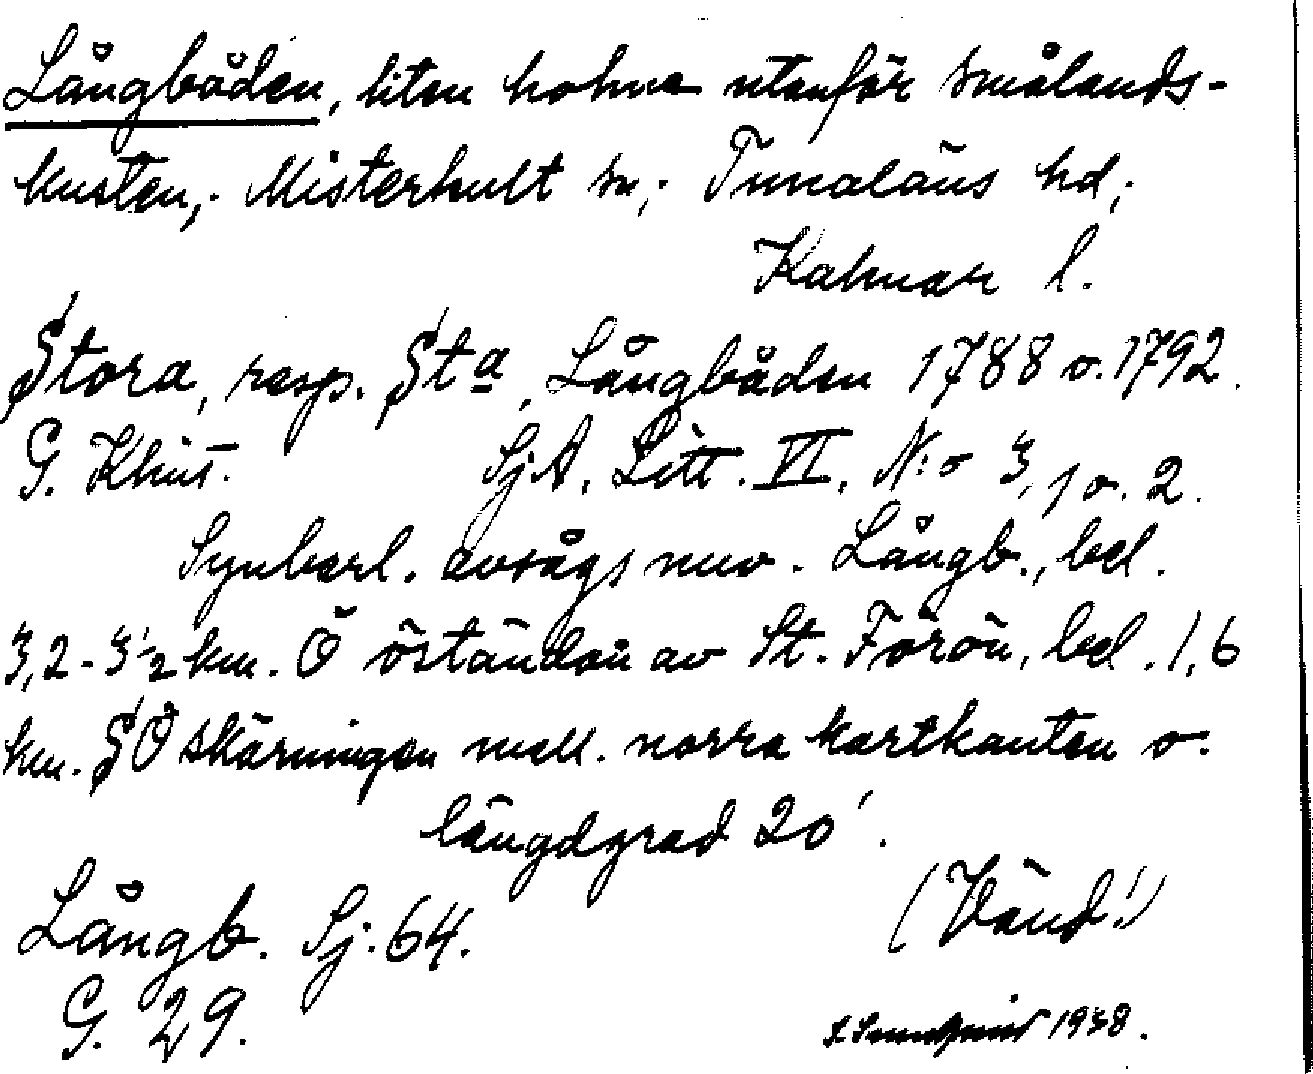 Långbåden, liten holme utanför smålands-
kusten; Misterhult sn; Tunaläns hd;
Kalmar l.
Stora, resp. Sta, Långbåden 1788 o. 1792.
G. Klint. SjA. Litt. VI. N:o 3, 1 o. 2.
Synbarl. avsågs nuv. Långb., bel.
3,2-3 1/2 km. Ö öständen av St. Förön, bel. 1,6
km. SO skärningen mell. norra kartkanten o.
längdgrad 20'.
Långb. Sj. 64. (Vänd!)
G. 29.
1938.